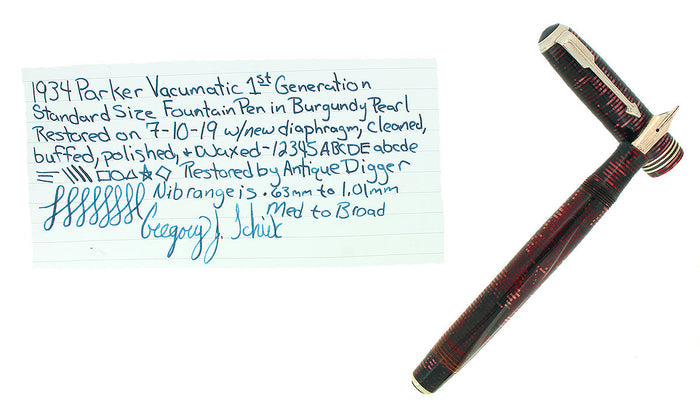 1934 Parker Vacumatic 1st Generation
Standard Size Fountain Pen in Burgundy Pearl
Restored on 7-10-19 w/new diaphragm, cleaned,
buffed, polished, + Waxed-12345 ABCDE abcde
Restored by Antique Digger
Nib range is .63mm to 1.01mm
Med to Broad
Gregory J.